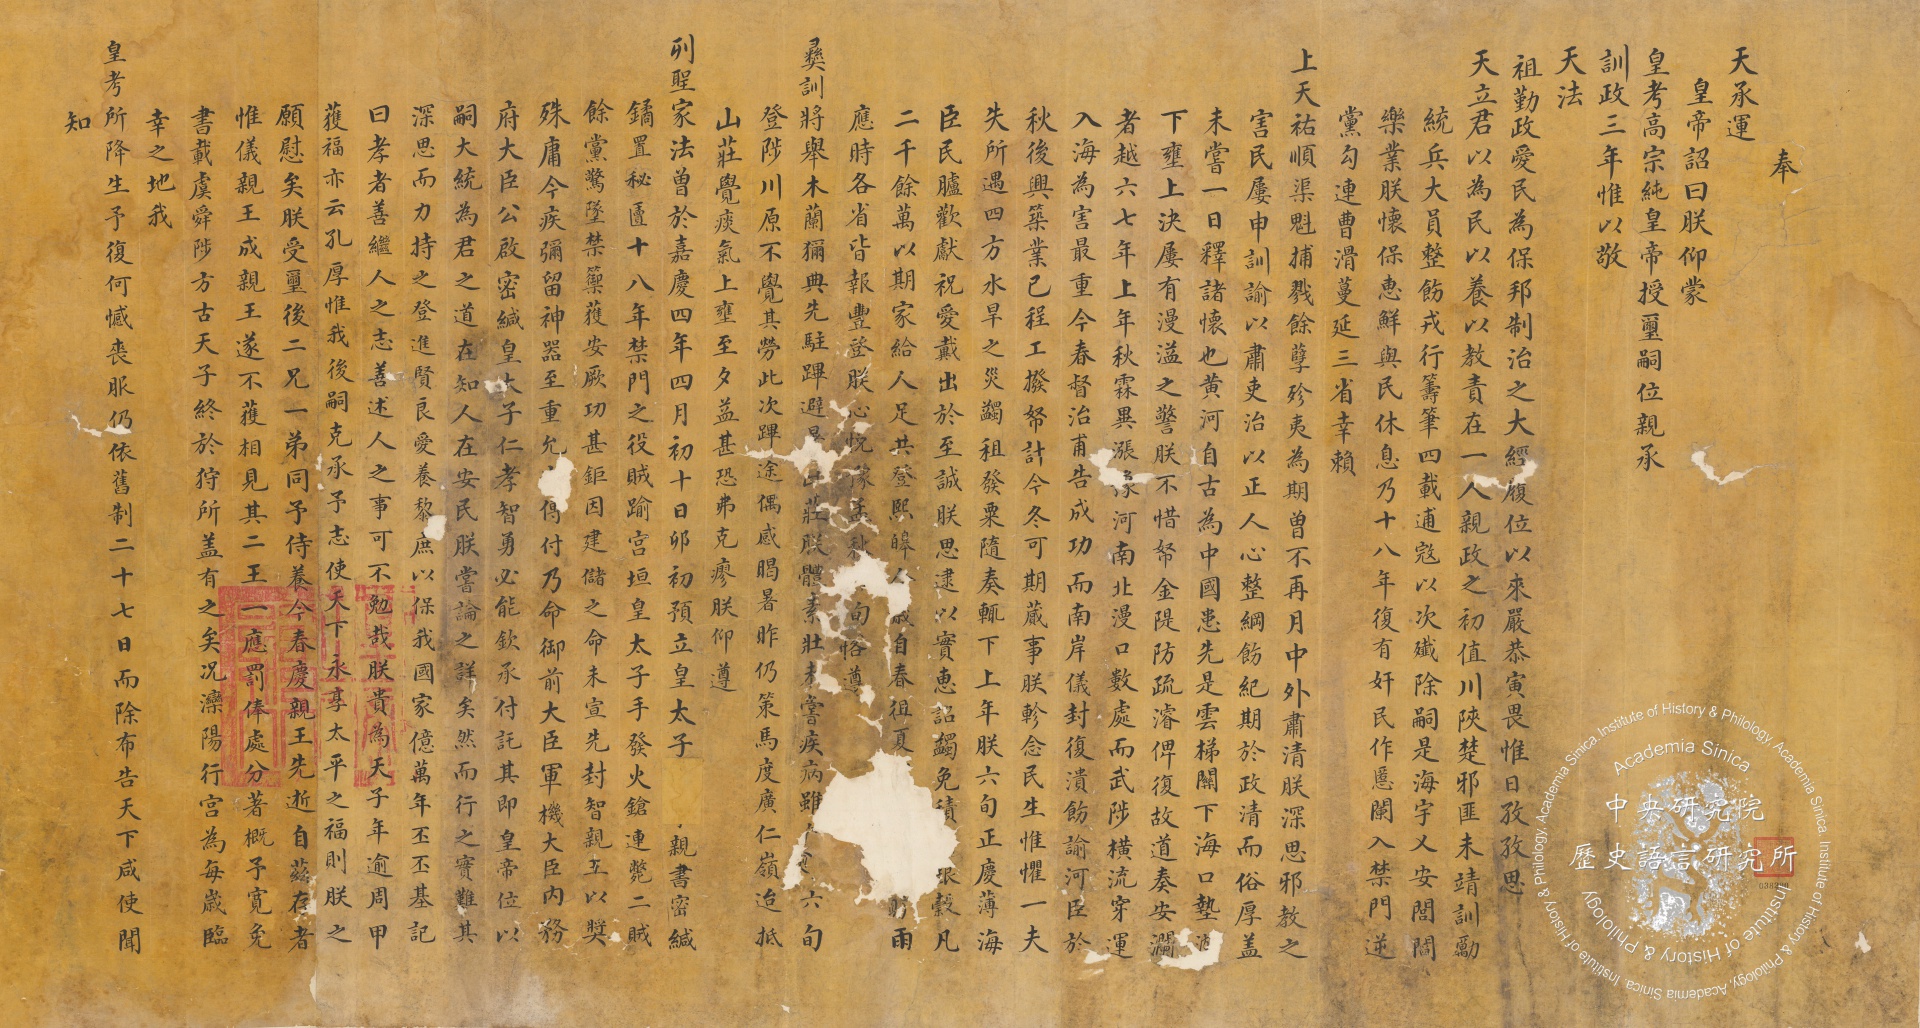 奉
天承運
皇帝詔曰朕仰蒙
皇考高宗純皇帝授璽嗣位親承
訓政三年惟以敬
天法
祖勤政愛民為保邦制治之大經履位以來嚴恭寅畏惟日孜孜思
天立君以為民以養以教責在一人親政之初值川陝楚邪匪未靖訓勵
統兵大員整飭戎行籌筆四載逋寇以次殲除嗣是海宇乂安閭閻
樂業朕懷保惠鮮與民休息乃十八年復有奸民作慝闌入禁門逆
黨勾連曹滑蔓延三省幸賴
上天祐順渠魁捕戮餘孽殄夷為期曾不再月中外肅清朕深思邪教之
害民屢申訓諭以肅吏治以正人心整綱飭紀期於政清而俗厚蓋
未嘗一日釋諸懷也黄河自古為中國患先是雲梯關下海口墊
下壅上決屢有漫溢之警朕不惜帑金隄防疏濬俾復故道奏安瀾
者越六七年上年秋霖異漲豫河南北漫口數處而武陟橫流穿運
入海為害最重今春督治甫告成功而南岸儀封復潰飭諭河臣於
秋後興築業已程工撥帑計今冬可期蕆事朕軫念民生惟懼一夫
失所遇四方水旱之災蠲租發粟隨奏輒下上年朕六旬正慶薄海
臣民臚歡獻祝愛戴出於至誠朕思逮以實惠詔蠲免積穀凡
二千餘萬以期家給人足共登熙皞今歲自春徂夏雨
應時各省皆報豐登朕心悅豫孟秋旬恪遵
彝訓將舉木蘭獮典先駐蹕避山莊朕體素壯未嘗疾病雖六旬
登陟川原不覺其勞此次蹕途偶感暍暑昨仍策馬度廣仁嶺迨抵
山莊覺痰氣上壅至夕益甚恐弗克瘳朕仰遵
列聖家法曾於嘉慶四年四月初十日卯初預立皇太子親書密緘
鐍置秘匱十八年禁門之役賊踰宮垣皇太子手發火鎗連斃二賊
餘黨驚墜禁籞獲安厥功甚鉅因建儲之命未宣先封智親王以獎
殊庸今疾彌留神器至重允得付乃命御前大臣軍機大臣内務
府大臣公啟密緘皇太子仁孝智勇必能欽承付託其即皇帝位以
嗣大統為君之道在知人在安民朕嘗論之詳矣然而行之實難其
深思而力持之登進賢良愛養黎庶以保我國家億萬年丕丕基記
曰孝者善繼人之志善述人之事可不勉哉朕貴為天子年逾周甲
獲福亦云孔厚惟我後嗣克承予志使天下永享太平之福則朕之
願慰矣朕受璽後二兄一弟同予侍養今春慶親王先逝自茲存者
惟儀親王成親王遂不獲相見其二王一應罰俸處分著概予寬免
書載虞舜陟方古天子終於狩所蓋有之矣况灤陽行宮為每歲臨
幸之地我
皇考所降生予復何憾喪服仍依舊制二十七日而除布告天下咸使聞
知
中央研究院
歷史語言研究所
Academia Sinica
Institute of History & Philology
038290